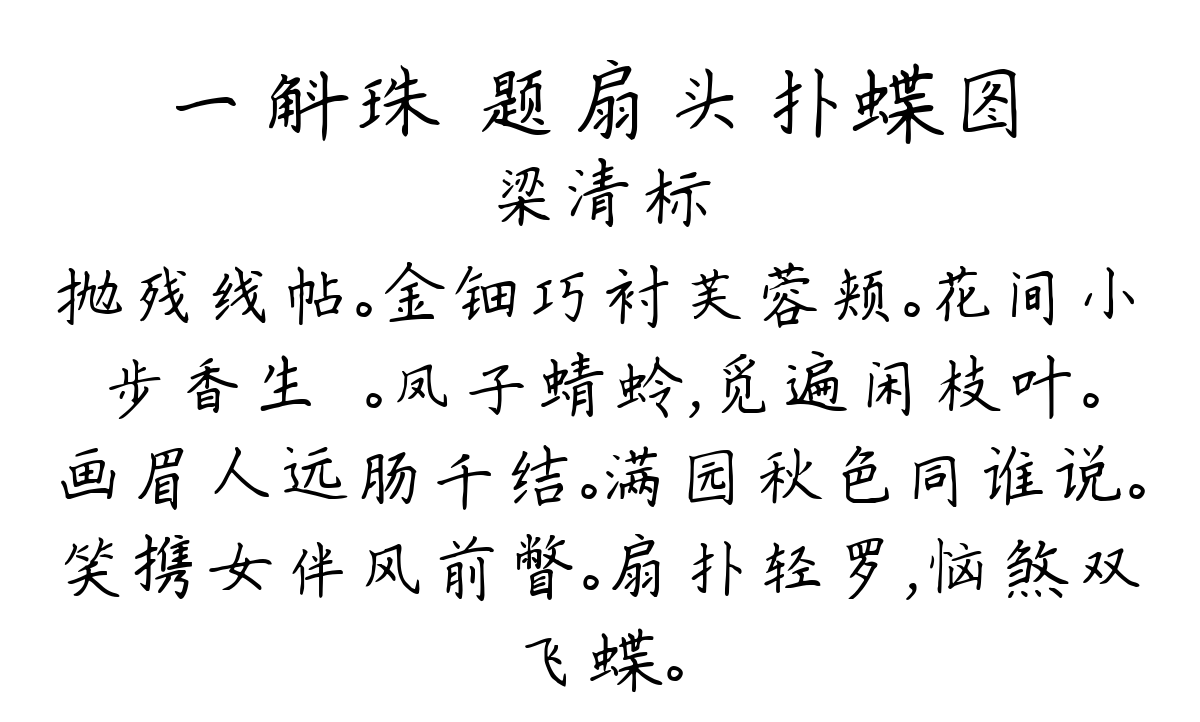 一斛珠 题扇头扑蝶图
梁清标
抛残线帖。金钿巧衬芙蓉颊。花间小
步香生 。凤子蜻蛉,觅遍闲枝叶。
画眉人远肠千结。满园秋色同谁说。
笑携女伴风前瞥。扇扑轻罗,恼煞双
飞蝶。